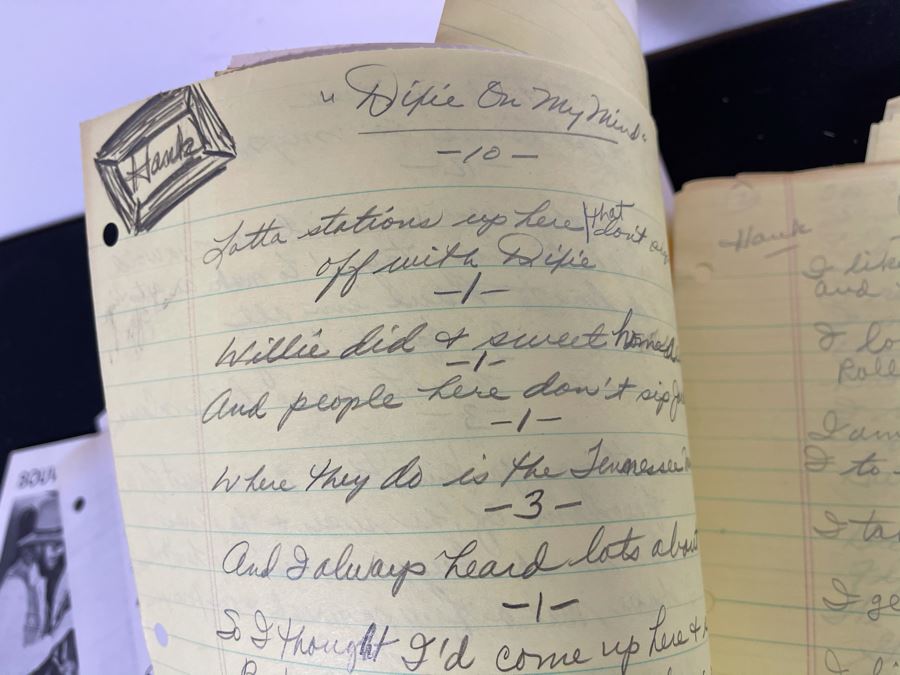 Hank
"Dixie On My Mind"
-10-
Lotta stations up here that
don't
off with Dixie
-1-
Willie did & sweet
-1-
And people here don't sip
-1-
Where they do is the Tennessee
-3-
And I always heard lots about
-1-
So I thought I'd come up here &
Hank
I like
and
I lo
Roll
I am
I to
I ta
I ge
SOUL